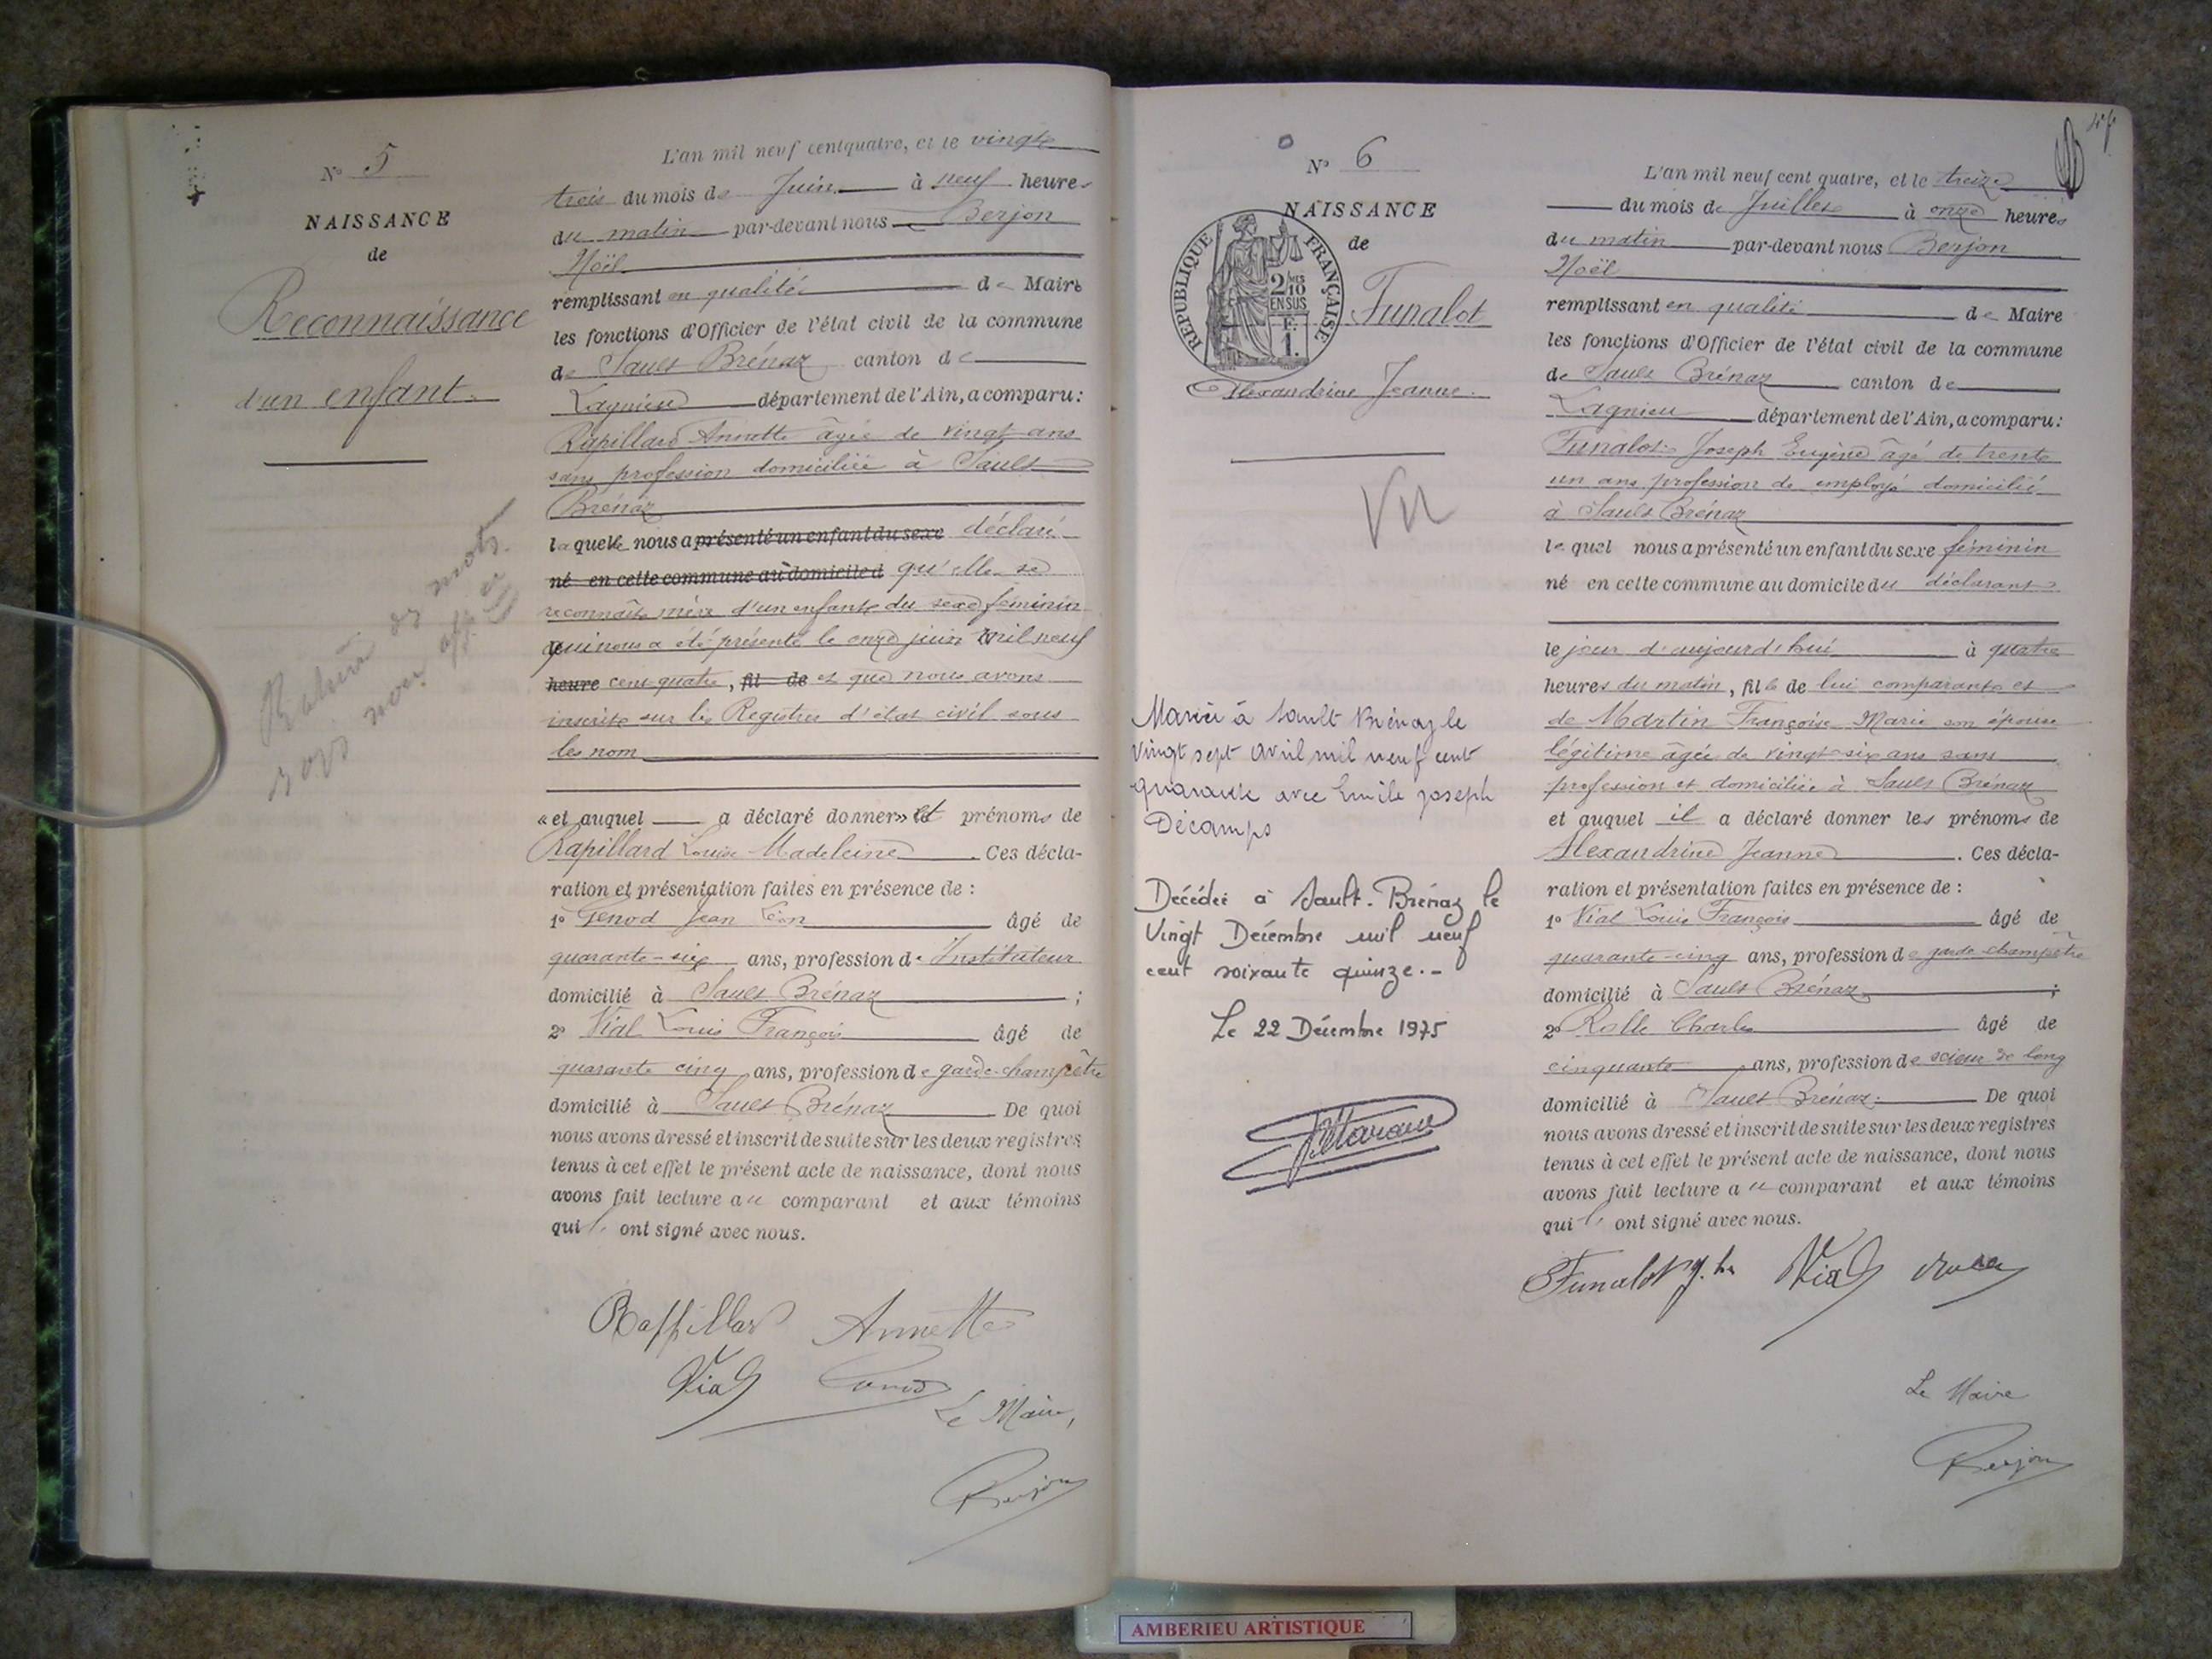 N° 5
NAISSANCE
de
Reconnaissance
d'un enfant.
L'an mil neuf cent quatre, et le vingt
trois du mois de Juin à neuf heures
du matin par-devant nous Berjon
Noël
remplissant en qualité de Maire
les fonctions d'Officier de l'état civil de la commune
de Sault Brénaz canton de
Lagnieu département de l'Ain, a comparu:
Rapillard Annette âgée de vingt ans
sans profession domiciliée à Sault
Brénaz
laquelle nous a présenté un enfant du sexe déclaré
né en cette commune au domicile d qu'elle se
reconnaît mère d'un enfant du sexe féminin
qui nous a été présenté le onze juin mil neuf
heure cent quatre, fil de et que nous avons
inscrite sur les Registres d'état civil sous
les nom
« et auquel a déclaré donner » et prénoms de
Rapillard Louise Madeleine. Ces décla-
ration et présentation faites en présence de :
1° Genod Jean Léon âgé de
quarante-six ans, profession d' Instituteur
domicilié à Sault Brénaz ;
2° Vial Louis François âgé de
quarante cinq ans, profession de garde-champêtre
domicilié à Sault Brénaz De quoi
nous avons dressé et inscrit de suite sur les deux registres
tenus à cet effet le présent acte de naissance, dont nous
avons fait lecture au comparant et aux témoins
qui ont signé avec nous.
Raffillard Annette
Vial Genod
Le Maire,
Berjon
N° 6
NAISSANCE
de
REPUBLIQUE FRANÇAISE
2/10 EN SUS
F. 1.
Funalot
Alexandrine Jeanne.
Vu
Mariée à Sault Brénaz le
vingt sept avril mil neuf cent
quarante avec Emile Joseph
Décamps
Décédée à Sault-Brénaz le
Vingt Décembre mil neuf
cent soixante quinze.-
Le 22 Décembre 1975
L'an mil neuf cent quatre, et le treize
du mois de Juillet à onze heures
du matin par-devant nous Berjon
Noël
remplissant en qualité de Maire
les fonctions d'Officier de l'état civil de la commune
de Sault Brénaz canton de
Lagnieu département de l'Ain, a comparu:
Funalot Joseph Eugène âgé de trente
un ans profession de employé domicilié
à Sault Brénaz
lequel nous a présenté un enfant du sexe féminin
né en cette commune au domicile du déclarant
le jour d'aujourd'hui à quatre
heures du matin, fille de lui comparant et
de Martin Françoise Marie son épouse
légitime âgée de vingt-six ans sans
profession et domiciliée à Sault Brénaz
et auquel il a déclaré donner les prénoms de
Alexandrine Jeanne. Ces décla-
ration et présentation faites en présence de :
1° Vial Louis François âgé de
quarante-cinq ans, profession de garde-champêtre
domicilié à Sault Brénaz ;
2° Rolle Charles âgé de
cinquante ans, profession de scieur de long
domicilié à Sault Brénaz. De quoi
nous avons dressé et inscrit de suite sur les deux registres
tenus à cet effet le présent acte de naissance, dont nous
avons fait lecture au comparant et aux témoins
qui ont signé avec nous.
Funalot Vial
Le Maire
Berjon
AMBERIEU ARTISTIQUE